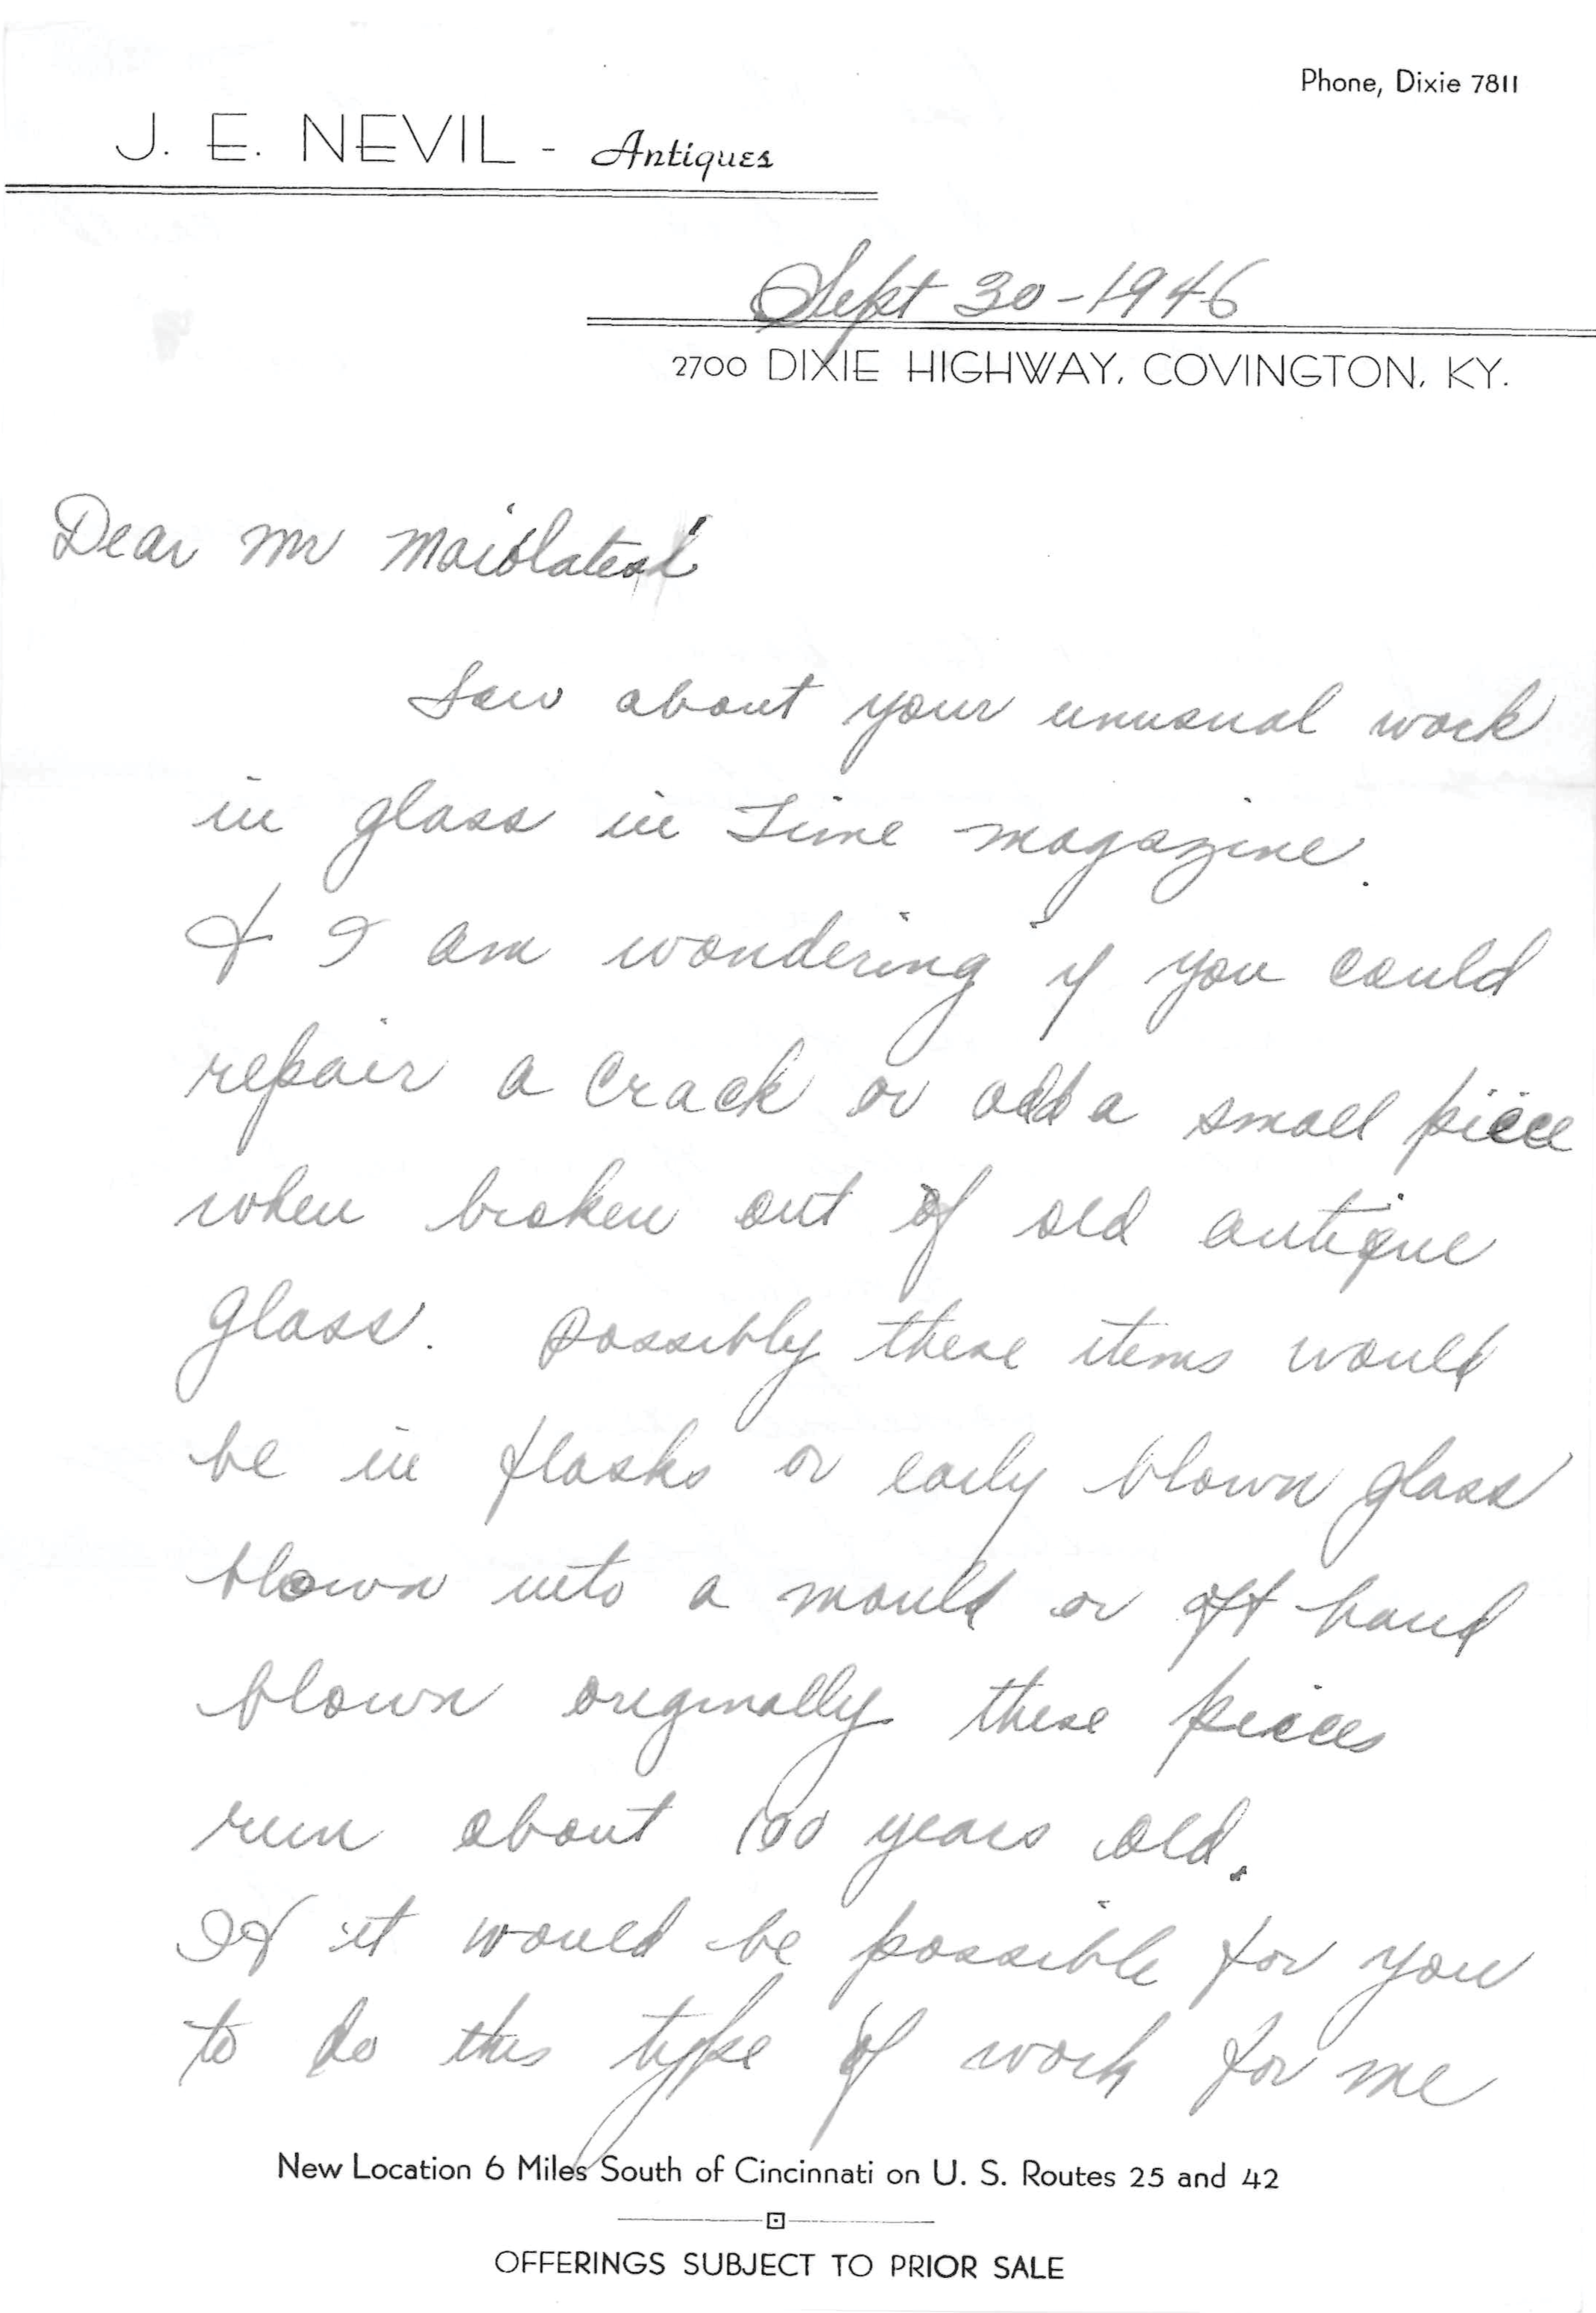 Phone, Dixie 7811
J. E. NEVIL - Antiques
Sept 30-1946
2700 DIXIE HIGHWAY, COVINGTON, KY.
Dear Mr
Saw about your unusual work
in glass in Time magazine.
& I am wondering if you could
repair a crack or add a small piece
when broken out of old antique
glass. Possibly these items would
be in flasks or early blown glass
blown into a mould or off hand
blown originally these pieces
run about 100 years old.
If it would be possible for you
to do this type of work for me
New Location 6 Miles South of Cincinnati on U. S. Routes 25 and 42
OFFERINGS SUBJECT TO PRIOR SALE